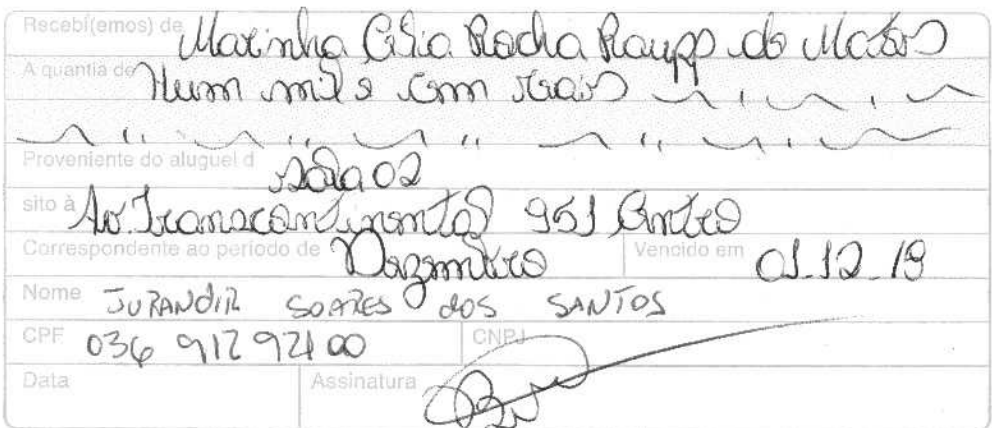 Recebí(emos) de Marinha Célia Rocha Raupp de Matos
A quantia de Hum mil e cem reais
Proveniente do aluguel d sala 02
sito à Av. Transcontinental 951 Centro
Correspondente ao período de Dezembro Vencido em 01.12.19
Nome JURANDIR SOARES dos SANTOS
CPF 036 912 921 00 CNPJ
Data Assinatura